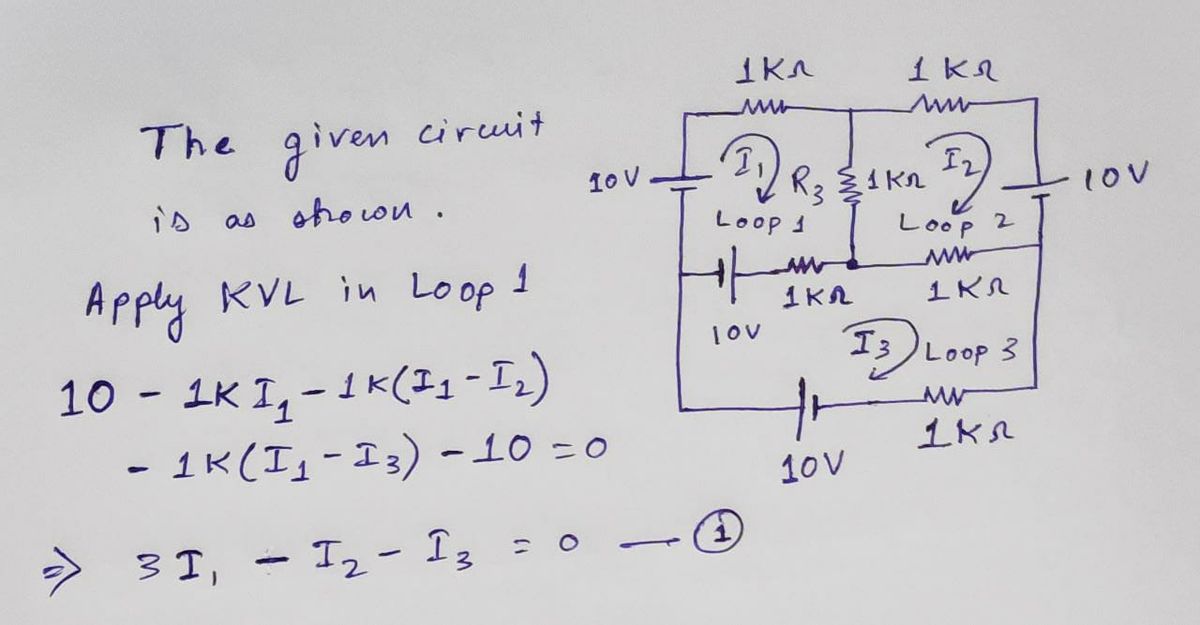 The given circuit
is as shown.
Apply KVL in Loop 1
10 - 1K I₁ - 1K(I₁ - I₂)
- 1K(I₁ - I₃) - 10 = 0
⇒ 3I₁ - I₂ - I₃ = 0 — ①
1KΩ 1KΩ
10V I₁ R₃ 1KΩ I₂ 10V
Loop 1 Loop 2
1KΩ 1KΩ
10V I₃ Loop 3
10V 1KΩ